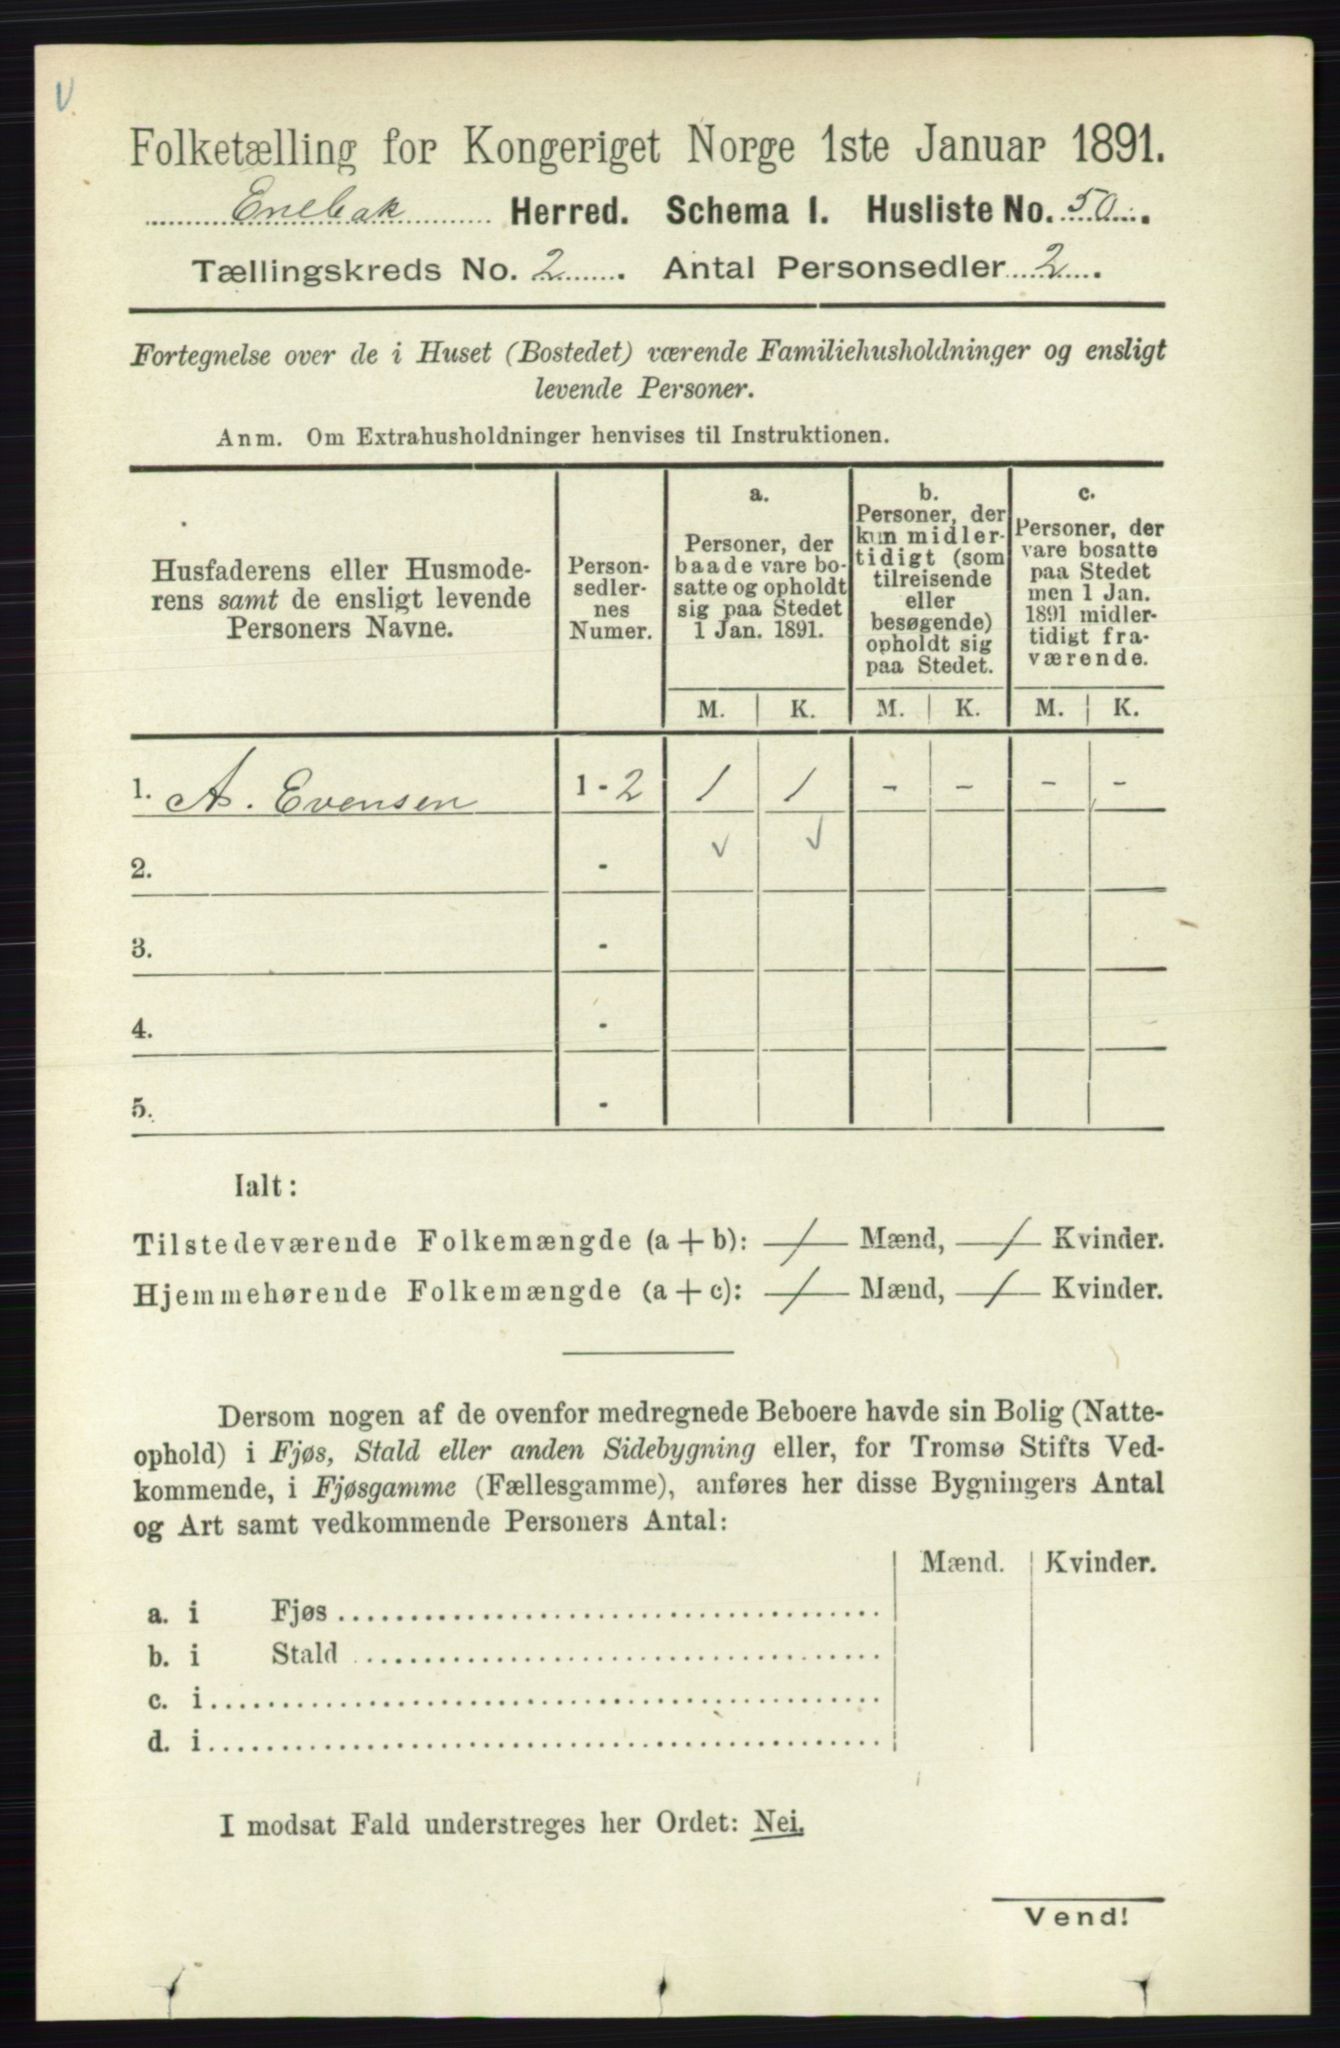 Folketælling for Kongeriget Norge 1ste Januar 1891.
Enebak Herred. Schema I. Husliste No. 50.
Tællingskreds No. 2. Antal Personsedler 2.
Fortegnelse over de i Huset (Bostedet) værende Familiehusholdninger og ensligt
levende Personer.
Anm. Om Extrahusholdninger henvises til Instruktionen.
Husfaderens eller Husmode-
rens samt de ensligt levende
Personers Navne.
Person-
sedler-
nes
Numer.
a.
Personer, der
baade vare bo-
satte og opholdt
sig paa Stedet
1 Jan. 1891.
b.
Personer, der
kun midler-
tidigt (som
tilreisende
eller
besøgende)
opholdt sig
paa Stedet.
c.
Personer, der
vare bosatte
paa Stedet
men 1 Jan.
1891 midler-
tidigt fra-
værende.
M. K. M. K. M. K.
1. A. Evensen 1 - 2 1 1 - - - -
2. - ✓ ✓
3. -
4. -
5. -
Ialt:
Tilstedeværende Folkemængde (a + b): 1 Mænd, 1 Kvinder.
Hjemmehørende Folkemængde (a + c): 1 Mænd, 1 Kvinder.
Dersom nogen af de ovenfor medregnede Beboere havde sin Bolig (Natte-
ophold) i Fjøs, Stald eller anden Sidebygning eller, for Tromsø Stifts Ved-
kommende, i Fjøsgamme (Fællesgamme), anføres her disse Bygningers Antal
og Art samt vedkommende Personers Antal:
Mænd. Kvinder.
a. i Fjøs
b. i Stald
c. i
d. i
I modsat Fald understreges her Ordet: Nei.
Vend!